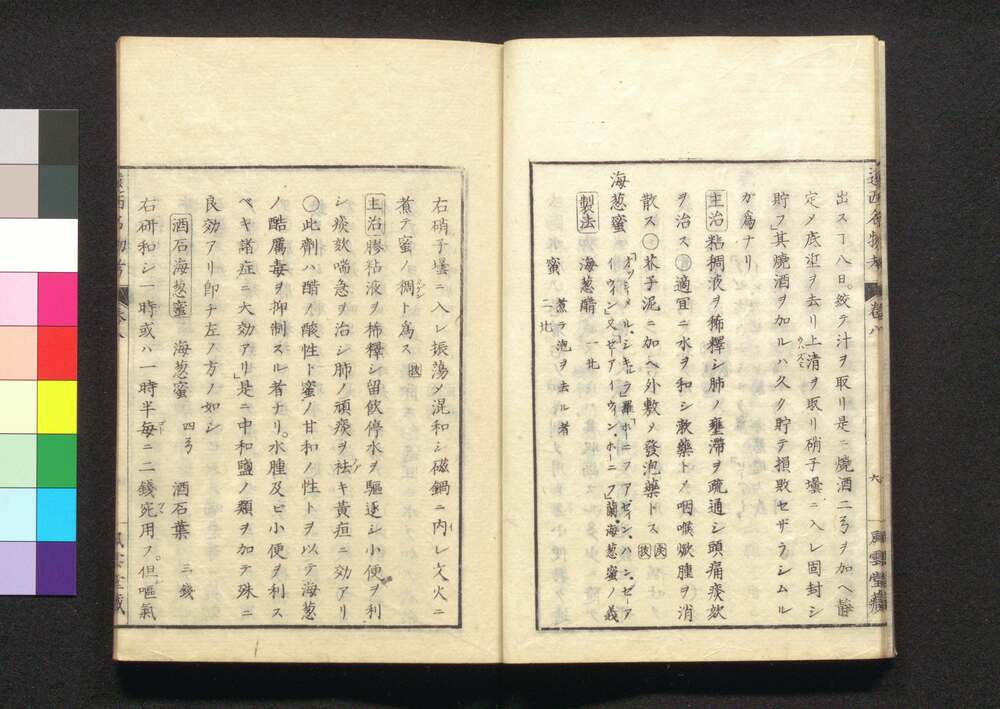 出ス丁八日。絞テ汁ヲ取リ是ニ燒酒二弓ヲ加ヘ静
定メ底滓ヲ去リ上清ヲ取リ硝子壜ニ入レ固封シ
貯フ」其燒酒ヲ加ルハ久ク貯テ損敗セザラシムル
ガ為ナリ
主治 粘稠液ヲ稀釋シ肺ノ壅滞ヲ疏通シ頭痛痰欬
ヲ治ス○適宜ニ水ヲ和シ漱藥トメ咽喉焮腫ヲ消
散ス○芥子泥ニ加ヘ外敷ノ發泡藥トス
海葱蜜
製法 海葱醋 一北
蜜 煮ラ泡ヲ去ル者 二北
右硝子壜ニ入レ振蕩メ混和シ磁鍋ニ内レ文火ニ
煮テ蜜ノ稠ト為ス
主治 膠粘液ヲ稀釋シ留飲停水ヲ驅逐シ小便ヲ利
シ痰欬喘急ヲ治シ肺ノ頑痰ヲ袪キ黄疸ニ効アリ
○此劑ハ醋ノ酸性ト蜜ノ甘和ノ性トヲ以テ海葱
ノ酷厲毒ヲ抑制スル者ナリ。水腫及ヒ小便ヲ利ス
ベキ諸症ニ大効アリ」是ニ中和鹽ノ類ヲ加テ殊ニ
良効アリ即チ左ノ方ノ如シ
酒石海葱蜜 海葱蜜 四弓 酒石葉 三錢
右研和シ一時或ハ一時半毎ニ二錢宛用フ。但嘔氣